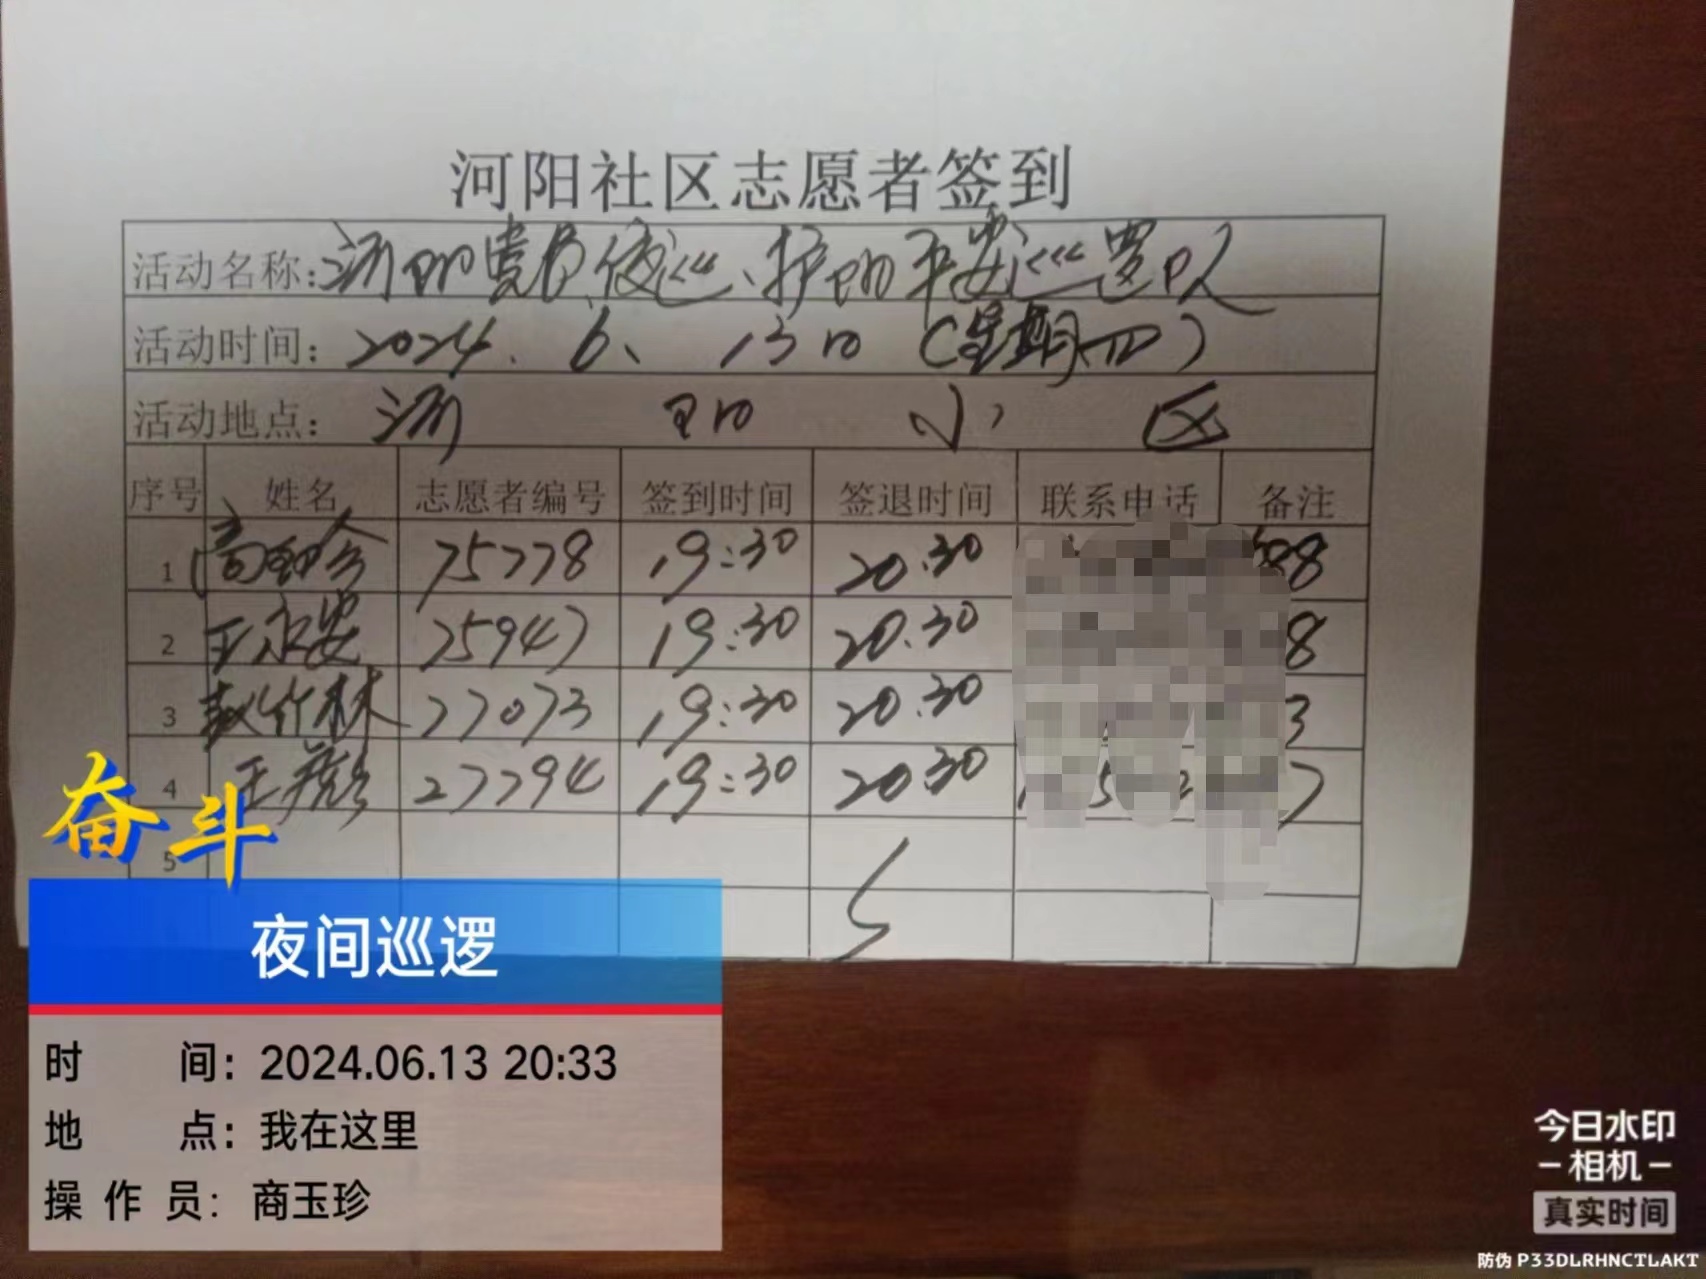 河阳社区志愿者签到
活动名称：河阳党员夜巡、护阳平安巡逻队
活动时间：2024. 6、 13日（星期四）
活动地点：河 阳 小 区
序号 姓名 志愿者编号 签到时间 签退时间 联系电话 备注
1 75778 19:30 20:30
2 王永安 25947 19:30 20:30 8
3 赵竹林 27073 19:30 20:30 3
4 王 27794 19:30 20:30
5
奋斗
夜间巡逻
时 间：2024.06.13 20:33
地 点：我在这里
操 作 员：商玉珍
今日水印
-相机-
真实时间
防伪 P33DLRHNCTLAKT